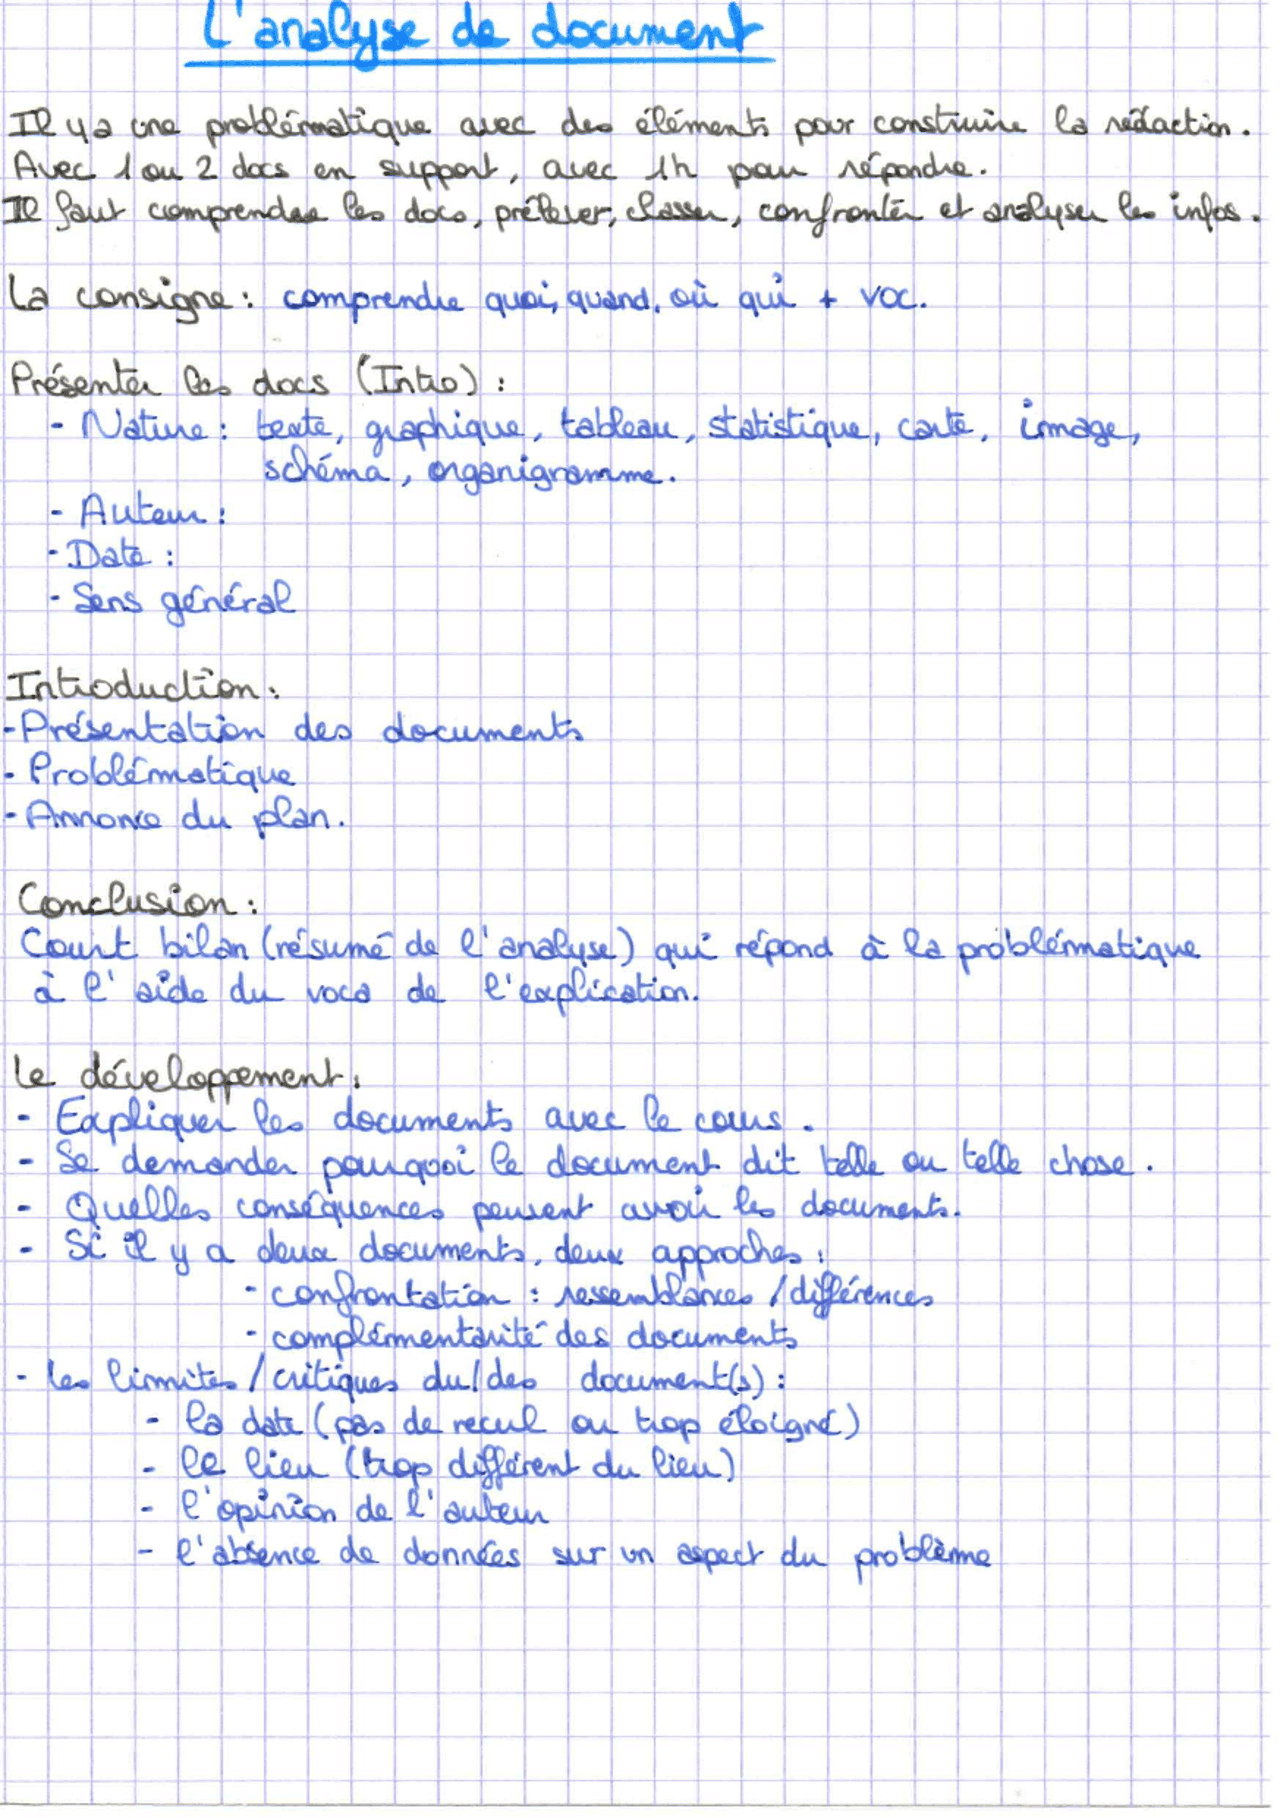 L'analyse de document
Il y a une problématique avec des éléments pour construire la rédaction.
Avec 1 ou 2 docs en support, avec 1h pour répondre.
Il faut comprendre les docs, prélever, classer, confronter et analyser les infos.
La consigne : comprendre quoi, quand, où qui + voc.
Présenter les docs (Intro) :
- Nature : texte, graphique, tableau, statistique, carte, image,
schéma, organigramme.
- Auteur :
- Date :
- Sens général
Introduction :
- Présentation des documents
- Problématique
- Annonce du plan.
Conclusion :
Court bilan (résumé de l'analyse) qui répond à la problématique
à l'aide du voca de l'explication.
Le développement :
- Expliquer les documents avec le cours.
- Se demander pourquoi le document dit telle ou telle chose.
- Quelles conséquences peuvent avoir les documents.
- Si il y a deux documents, deux approches :
- confrontation : ressemblances / différences
- complémentarité des documents
- Les limites / critiques du/des document(s) :
- la date (pas de recul ou trop éloigné)
- le lieu (trop différent du lieu)
- l'opinion de l'auteur
- l'absence de données sur un aspect du problème